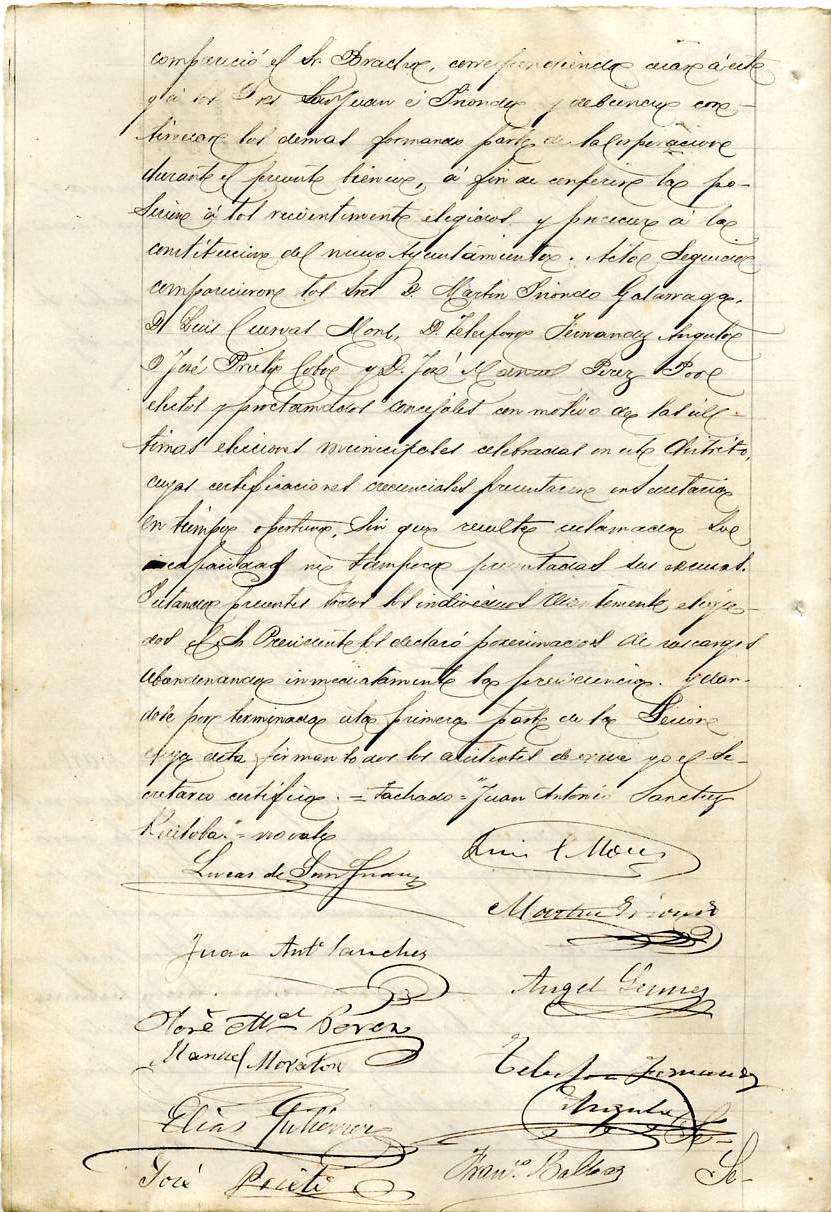 compareció el Sr. Bracho, correspondiendo cesar á este
y á los Sres San Juan é Iriondo y debiendo con-
tinuar los demas formando parte de la Corporacion
durante el presente bienio, á fin de conferir la po-
sesion á los recientemente elegidos y proceder á la
constitucion del nuevo Ayuntamiento. Acto seguido
comparecieron los Sres D. Martin Iriondo Galarraga,
D. Luis Cuevas Mons, D. Telesforo Fernandez Angulo
D. José Prieto Cobo y D. José Manuel Perez Pool
electos y proclamados concejales con motivo de las úl-
timas elecciones municipales celebradas en este distrito,
cuyas certificaciones credenciales presentaron en Secretaria
en tiempo oportuno, sin que resulte reclamacion de
incapacidad ni tampoco presentadas sus excusas.
Estando presentes todos los individuos recientemente elegi-
dos el Sr Presidente los declaró posesionados de sus cargos
abandonando inmediatamente la presidencia. y dan-
dose por terminada esta primera parte de la Sesion
cuya acta firman todos los asistentes de que yo el Se-
cretario certifico. = Tachado = "Juan Antonio Sanchez
" = no vale
Lucas de San Juan
Luis C Mons
Martin Iriondo
Juan Antº Sanchez
Angel Gomez
José Mel Perez
Manuel Moraton
Telesforo Fernandez
Angulo
Elias Gutierrez
José Prieto
Franco
Se-